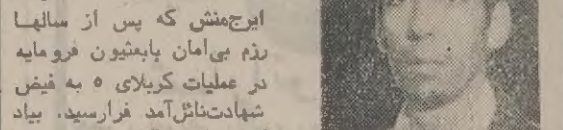 ایرج‌منش که پس از سالها
رزم بی‌امان بابعثیون فرومایه
در عملیات کربلای ۵ به فیض
شهادت‌نائل‌آمد فرارسید. بیاد